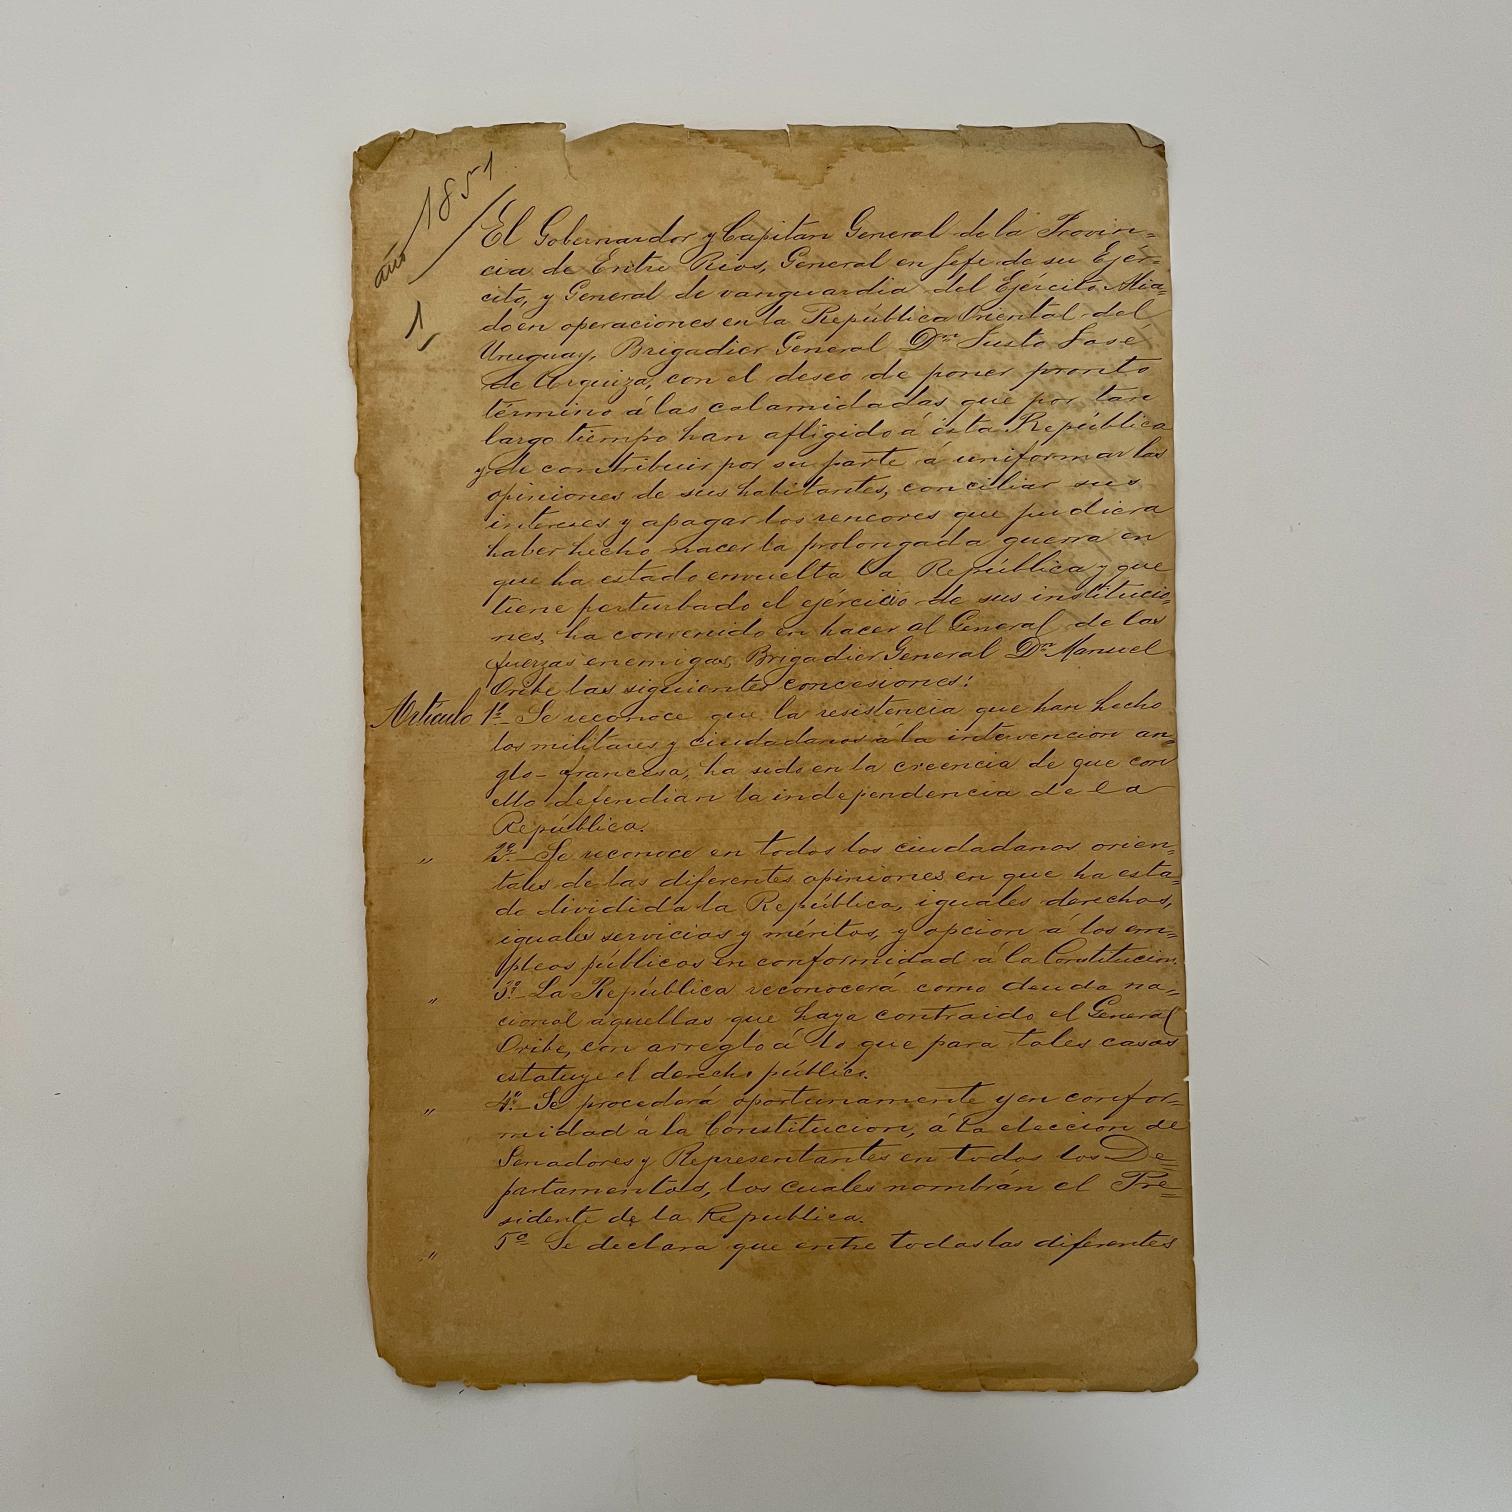 año 1851
1
El Gobernador y Capitan General de la Provin=
cia de Entre Rios, General en Jefe de su Ejér=
cito, y General de vanguardia del Ejército Alia=
do en operaciones en la República Oriental del
Uruguay, Brigadier General Dn Justo José
de Urquiza, con el deseo de poner pronto
término á las calamidades que por tan
largo tiempo han afligido á ésta República
y de contribuir por su parte á uniformar las
opiniones de sus habitantes, conciliar sus
intereses y apagar los rencores que pudiera
haber hecho nacer la prolongada guerra en
que ha estado envuelta la República y que
tiene perturbado el ejércicio de sus institucio=
nes, ha convenido en hacer al General de las
fuerzas enemigas, Brigadier General Dn Manuel
Oribe las siguientes concesiones:
Artículo 1º- Se reconoce que la resistencia que han hecho
los militares y ciudadanos á la intervencion an=
glo-francesa, ha sido en la creencia de que con
ello defendian la independencia de la
República.
" 2º- Se reconoce en todos los ciudadanos orien=
tales de las diferentes opiniones en que ha esta=
do dividida la República, iguales derechos,
iguales servicios y méritos, y opcion á los em=
pleos públicos en conformidad á la Constitucion.
" 3º- La República reconocerá como deuda na=
cional aquellas que haya contraido el General
Oribe, con arreglo á lo que para tales casos
estatuye el derecho público.
" 4º- Se procederá oportunamente y en confor=
midad á la Constitucion, á la eleccion de
Senadores y Representantes en todos los De=
partamentos, los cuales nombrán el Pre=
sidente de la Republica.
" 5º Se declara que entre todas las diferentes